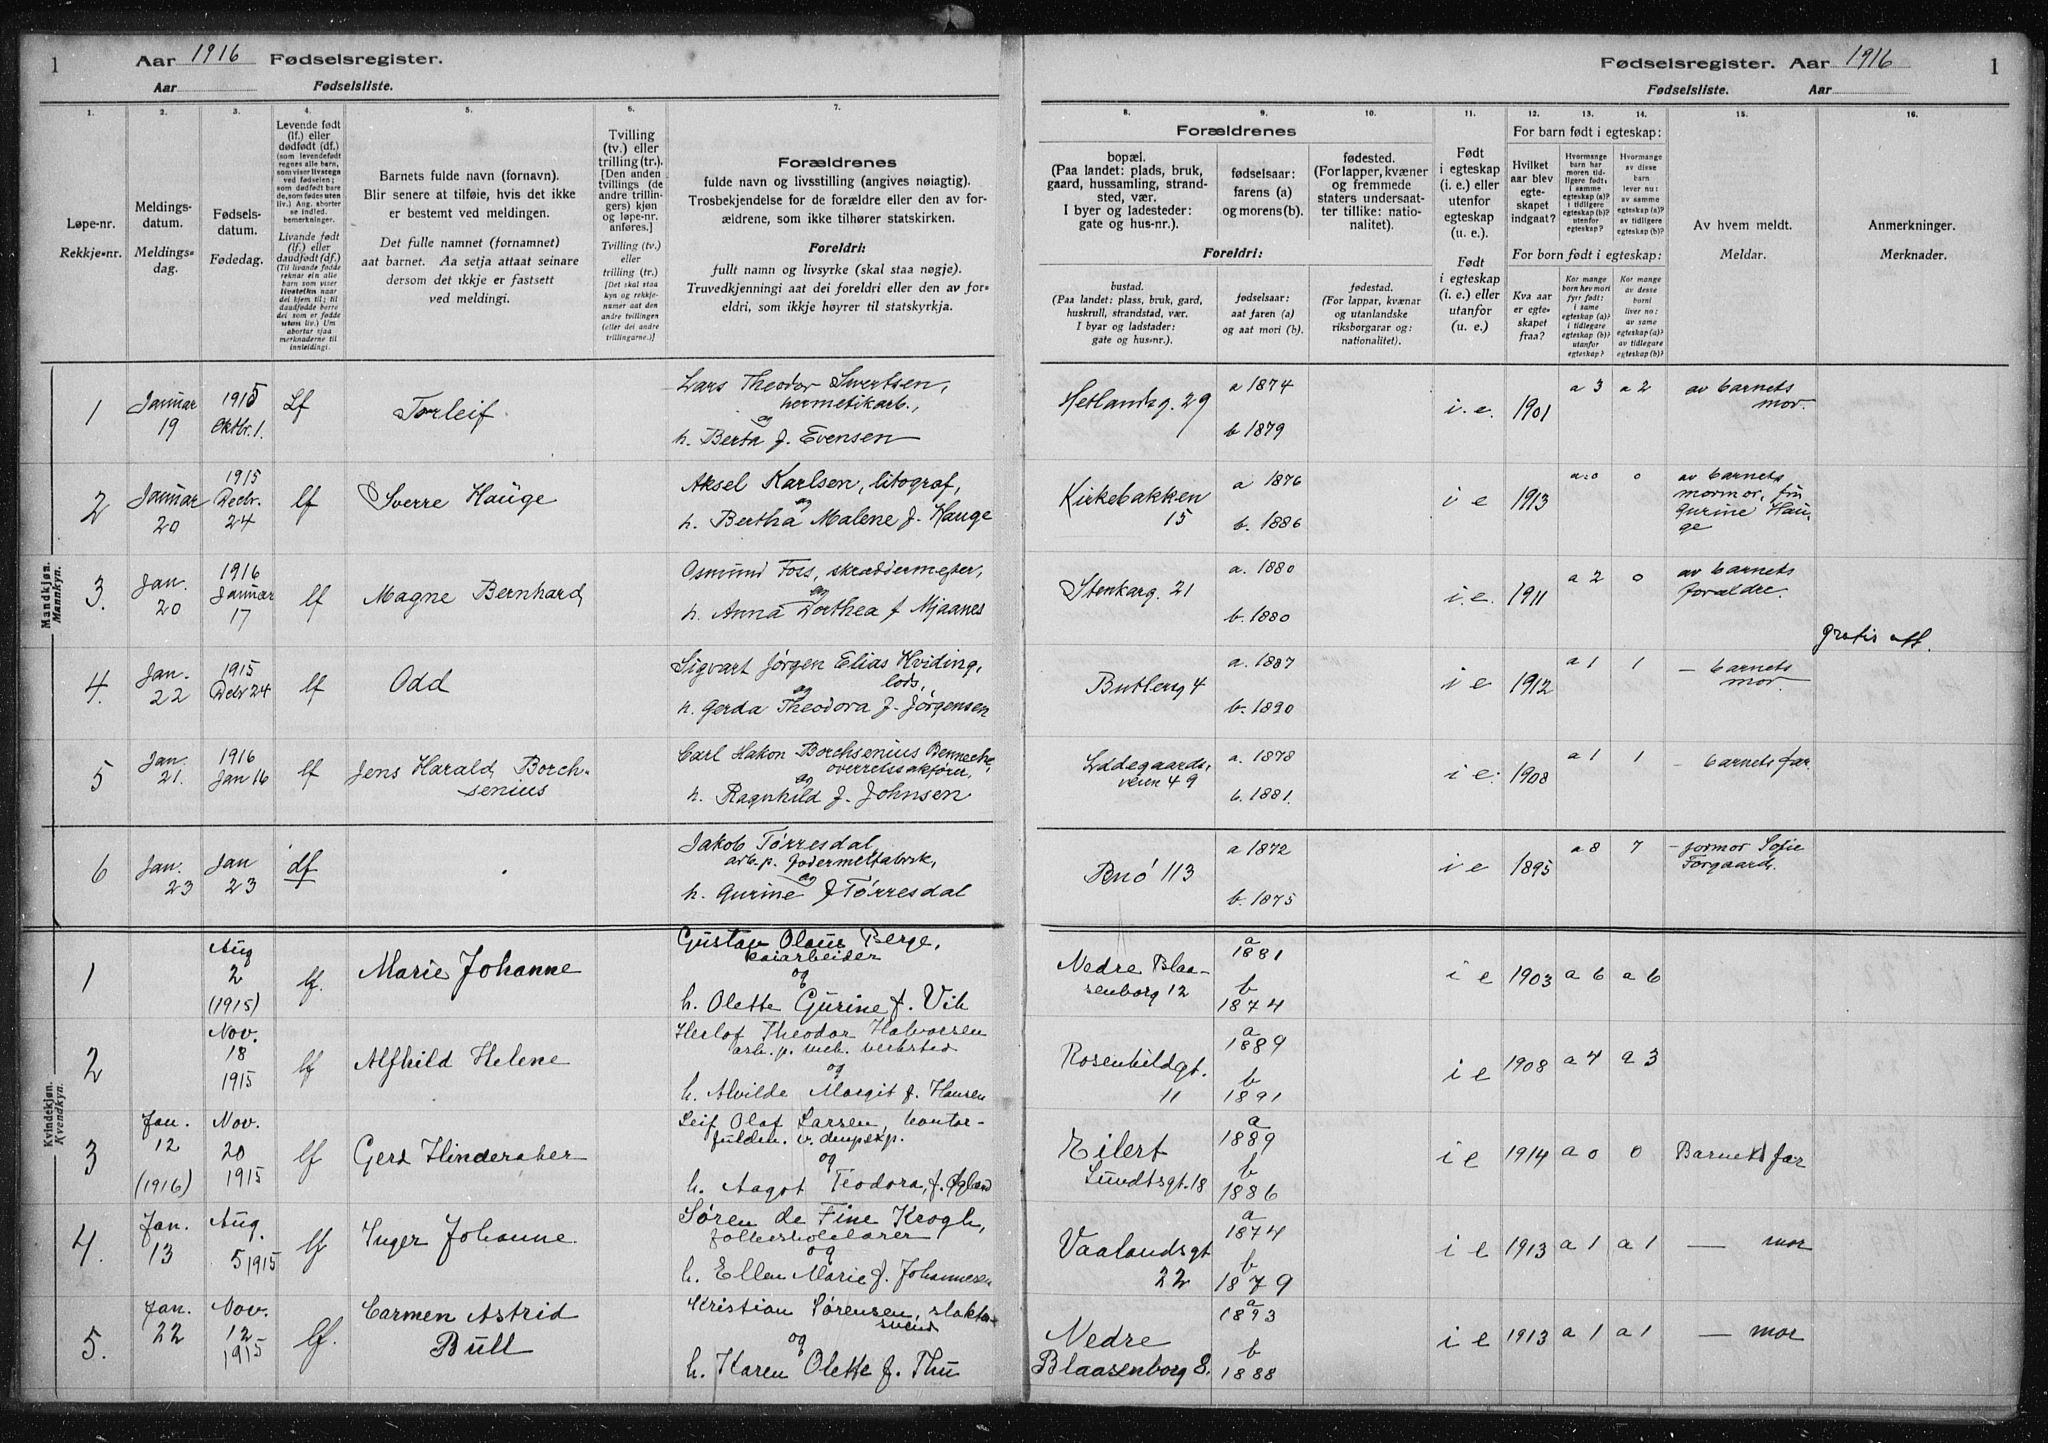 1 Aar 1916 Fødselsregister.
Aar Fødselsliste.
Fødselsregister. Aar 1916 1
Fødselsliste. Aar
1. 2. 3. 4. 5. 6. 7.
8. 9. 10. 11. 12. 13. 14. 15. 16.
Løpe-nr.
Rekkje-nr.
Meldings-
datum.
Meldings-
dag.
Fødsels-
datum.
Fødedag.
Levende født
(lf.) eller
dødfødt (df.)
(som levendefødt
regnes alle barn,
som viser livstegn
ved fødselen;
som dødfødt bare
de, som fødes uten
liv.) Ang. aborter
se indled.
bemerkninger.
Livande født
(lf.) eller
daudfødt (df.)
(Til livande fødde
reknar ein alle
born som viser
livsteikn naar
dei kjem til; til
daudfødde berre
dei som er fødde
utan liv.) Um
abortar sjaa
merknaderne til
innleidingi.
Barnets fulde navn (fornavn).
Blir senere at tilføie, hvis det ikke
er bestemt ved meldingen.
Det fulle namnet (fornamnet)
aat barnet. Aa setja attaat seinare
dersom det ikkje er fastsett
ved meldingi.
Tvilling
(tv.) eller
trilling (tr.).
[Den anden
tvillings (de
andre trillin-
gers) kjøn
og løpe-nr.
anføres.]
Tvilling (tv.)
eller
trilling (tr.)
[Det skal staa
kyn og rekkje-
numer aat den
andre tvillingen
(eller dei andre
trillingarne.)]
Forældrenes
fulde navn og livsstilling (angives nøiagtig).
Trosbekjendelse for de forældre eller den av for-
ældrene, som ikke tilhører statskirken.
Foreldri:
fullt namn og livsyrke (skal staa nøgje).
Truvedkjenningi aat dei foreldri eller den av for-
eldri, som ikkje høyrer til statskyrkja.
Forældrenes
bopæl.
(Paa landet: plads, bruk,
gaard, hussamling, strand-
sted, vær.
I byer og ladesteder:
gate og hus-nr.).
fødselsaar:
farens (a)
og morens (b).
fødested.
(For lapper, kvæner
og fremmede
staters undersaat-
ter tillike: natio-
nalitet).
Foreldri:
bustad.
(Paa landet: plass, bruk, gard,
huskrull, strandstad, vær.
I byar og ladstader:
gate og hus-nr.).
fødselsaar:
aat faren (a)
og aat mori (b).
fødestad.
(For lappar, kvænar
og utanlandske
riksborgarar og:
nationalitet).
Født
i egteskap
(i. e.) eller
utenfor
egteskap
(u. e.).
Født
i egteskap
(i. e.) eller
utanfor
(u. e.).
For barn født i egteskap:
Hvilket
aar blev
egte-
skapet
indgaat?
Hvormange
barn har
moren tid-
ligere født:
i samme
egteskap (a)?
i tidligere
egteskap (b)?
utenfor
egteskap?
Hvormange
av disse
barn
lever nu:
av samme
egteskap (a)?
av tidligere
egteskap (b)?
For born født i egteskap:
Kva aar
er egte-
skapet
fraa?
Kor mange
born hev mori
fyrr født:
i same
egteskap (a)?
i tidlegare
egteskap (b)?
utanfor
egteskap?
Kor mange
av desse
borni
liver no:
av same
egteskap (a)?
av tidlegare
egteskap (b)?
Av hvem meldt.
Meldar.
Anmerkninger.
Merknader.
Mandkjøn.
Mannkyn.
1 Januar 19 1915 Oktbr. 1. Lf Torleif
Lars Theodor Sivertsen,
hermetikarb.,
og
h. Berta f. Evensen
Hetlandsg. 29 a 1874 b 1879 i. e. 1901 a 3 a 2 av barnets mor.
2 Januar 20 1915 Decbr. 24 lf Sverre Hauge
Aksel Karlsen, litograf,
og
h. Bertha Malene f. Hauge
Kirkebakken 15 a 1876 b. 1886 i e 1913 a: 0 0 av barnets mormor, fru Gurine Hau-
ge
3. Jan. 20 1916 Januar 17 lf Magne Bernhard
Osmund Foss, skræddermester,
og
h. Anna Dorthea f Mjaanes
Stenkarg. 21 a. 1880 b. 1880 i. e. 1911 a 2 0 av barnets forældre.
gratis att.
4. Jan. 22 1915 Decbr 24 lf Odd
Sigvart Jørgen Elias Kviding,
lods,
og
h. Gerda Theodora f. Jørgensen
Butlerg 4 a. 1887 b. 1890 i e 1912 a 1 1 — barnets mor.
5 Jan. 21. 1916 Jan 16 lf Jens Harald Borch-
senius
Carl Hakon Borchsenius Benneche,
overretssakfører,
og
h. Ragnhild f. Johnsen
Ladegaards-
veien 49 a. 1878 b. 1881. i e. 1908 a 1 1 — barnets far.
6 Jan. 23 Jan 23 df
Jakob Tørresdal,
arb. p.
og
h. Gurine f Tørresdal
Buø 113 a 1872 b. 1875 i e 1895 a 8 7 — jormor Sofie
Torgaard.
Kvindekjøn.
Kvendkyn.
1 Aug 2 (1915) lf. Marie Johanne
Gustav Olaus Berge,
kaiarbeider
og
h. Olette Gurine f. Vik
Nedre Blaa-
senborg 12 a 1881 b 1874 i e 1903 a 6 a 6
2 Nov. 18 1915 lf Alfhild Helene
Herlof Theodor Halvorsen
arb. p. mek. verksted
og
h. Alvilde Margit f. Hansen
Rosenkildgt.
11 a 1889 b 1891 i e 1908 a 4 a 3
3 Jan. 12 (1916) Nov. 20 1915 lf Gerd Hinderaker
Leif Olaf Larsen, kontor-
fuldm. v. dmpskp.
og
h. Aagot Teodora, f. Øgland
Eilert
Sundtsgt. 18 a 1889 b 1886 i e 1914 a 0 0 Barnets far
4. Jan. 13 Aug. 5 1915 lf Inger Johanne
Søren de Fine Krogh,
folkeskolelærer
og
h. Ellen Marie f. Johannesen
Vaalandsgt
22 a 1874 b 1879 i e 1913 a 1 a 1 — mor
5. Jan. 22 Nov. 12 1915 lf. Carmen Astrid
Bull
Kristian Sørensen, slakter-
svend
og
h. Karen Olette f. Thu
Nedre
Blaasenborg 8. a 1893 b 1888 i e 1913 a 1 a 1 — mor